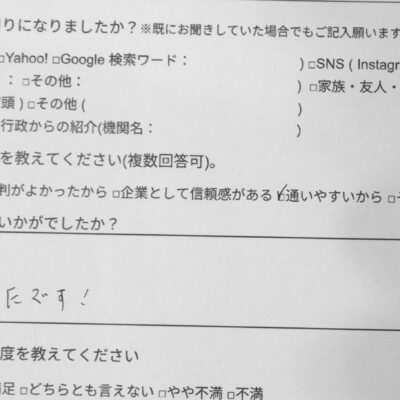 りになりましたか？※既にお聞きしていた場合でもご記入願います
□Yahoo! □Google 検索ワード： ) □SNS ( Instagr
： □その他： ) □家族・友人・
頭 ) □その他 ( )
行政からの紹介(機関名： )
を教えてください(複数回答可)。
判がよかったから □企業として信頼感がある ☑通いやすいから □そ
いかがでしたか？
たです！
度を教えてください
足 □どちらとも言えない □やや不満 □不満